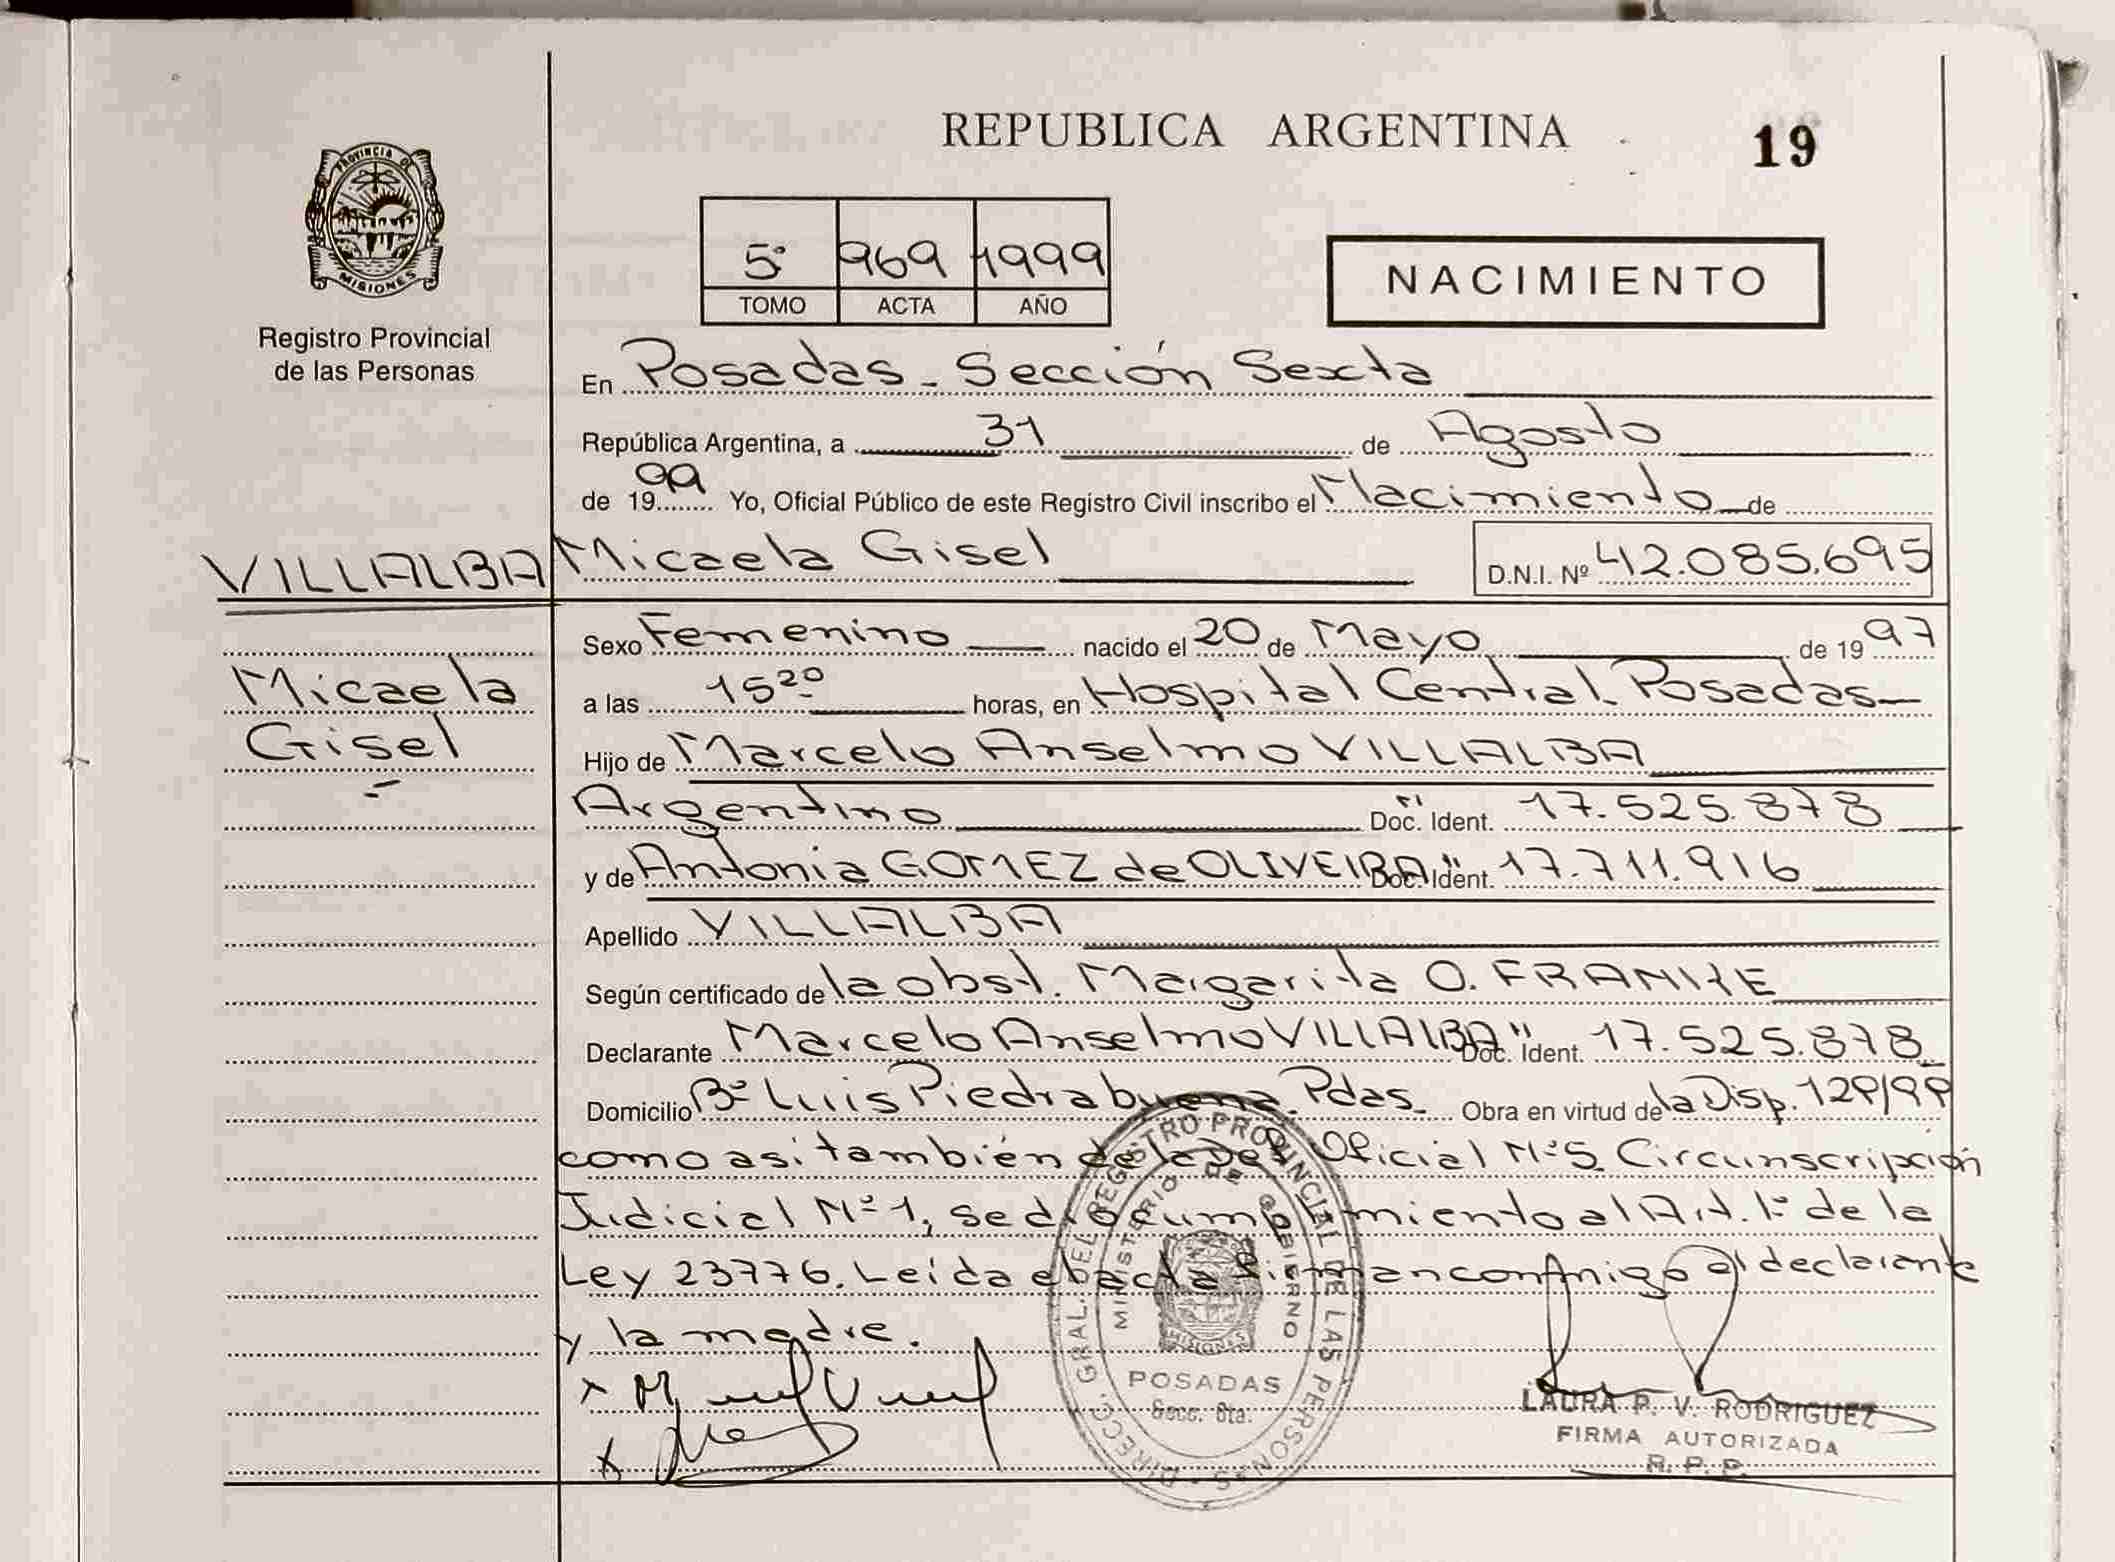 REPUBLICA ARGENTINA
19
PROVINCIA DE
MISIONES
Registro Provincial
de las Personas
5º 969 1999
TOMO ACTA AÑO
NACIMIENTO
En Posadas - Sección Sexta
República Argentina, a 31 de Agosto
de 1999 Yo, Oficial Público de este Registro Civil inscribo el Nacimiento de
VILLALBA Micaela Gisel D.N.I. Nº 42.085.695
Sexo Femenino nacido el 20 de Mayo de 1997
Micaela
Gisel
a las 15 20 horas, en Hospital Central - Posadas -
Hijo de Marcelo Anselmo VILLALBA
Argentino Doc. Ident. 17.525.878
y de Antonia GOMEZ de OLIVEIRA Doc. Ident. 17.711.916
Apellido VILLALBA
Según certificado de la obst. Margarita O. FRANKE
Declarante Marcelo Anselmo VILLALBA Doc. Ident. 17.525.878
Domicilio Bº Luis Piedrabuena - Pdas. Obra en virtud de la Disp. 129/99
como asi también de la Def. Oficial Nº 5 Circunscripción
Judicial Nº 1, se dio cumplimiento al Art. 1º de la
Ley 23776. Leida el acta firman conmigo el declarante
y la madre.
DIRECC. GRAL. DEL REGISTRO PROVINCIAL DE LAS PERSONAS
MINISTERIO DE GOBIERNO
MISIONES
POSADAS
Secc. 6ta.
LAURA P. V. RODRIGUEZ
FIRMA AUTORIZADA
R. P. P.